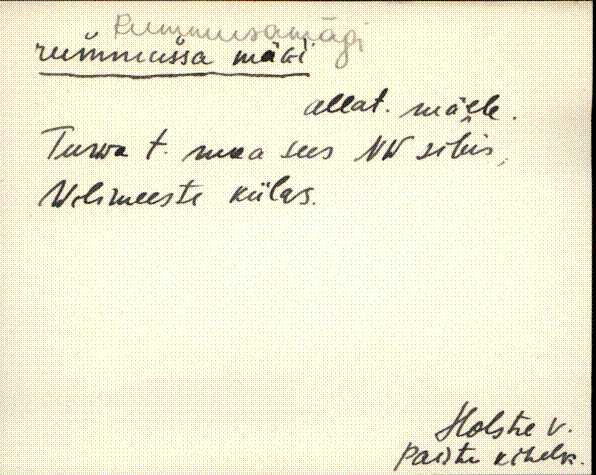 Rummusamägi
rummussa mäki
allat. mäele.
Turva t. maa sees NW sihis,
Velimeeste külas.
Holstre v.
Paistu kihelk.